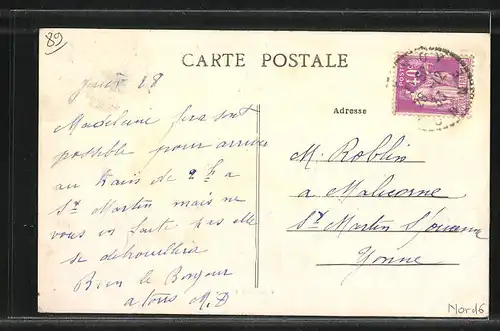 89
CARTE POSTALE
POSTES
40c
Jeudi 28
Madeleine fera son
possible pour arriver
au train de 2 h a
St Martin mais ne
vous en faite pas elle
se debrouillera
Bien le Bonjour
a tous M. D
Adresse
M. Roblin
a Malicorne
St Martin S/ouanne
Yonne
Nord6